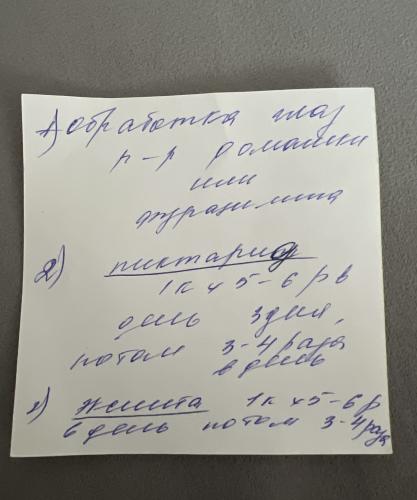 1) обработка глаз
р-р ромашки
или
фурацилина
2) пиктарид
1к х 5-6 р в
день 3 дня,
потом 3-4 раза
в день
1к х 5-6 р
в день потом 3-4 раза